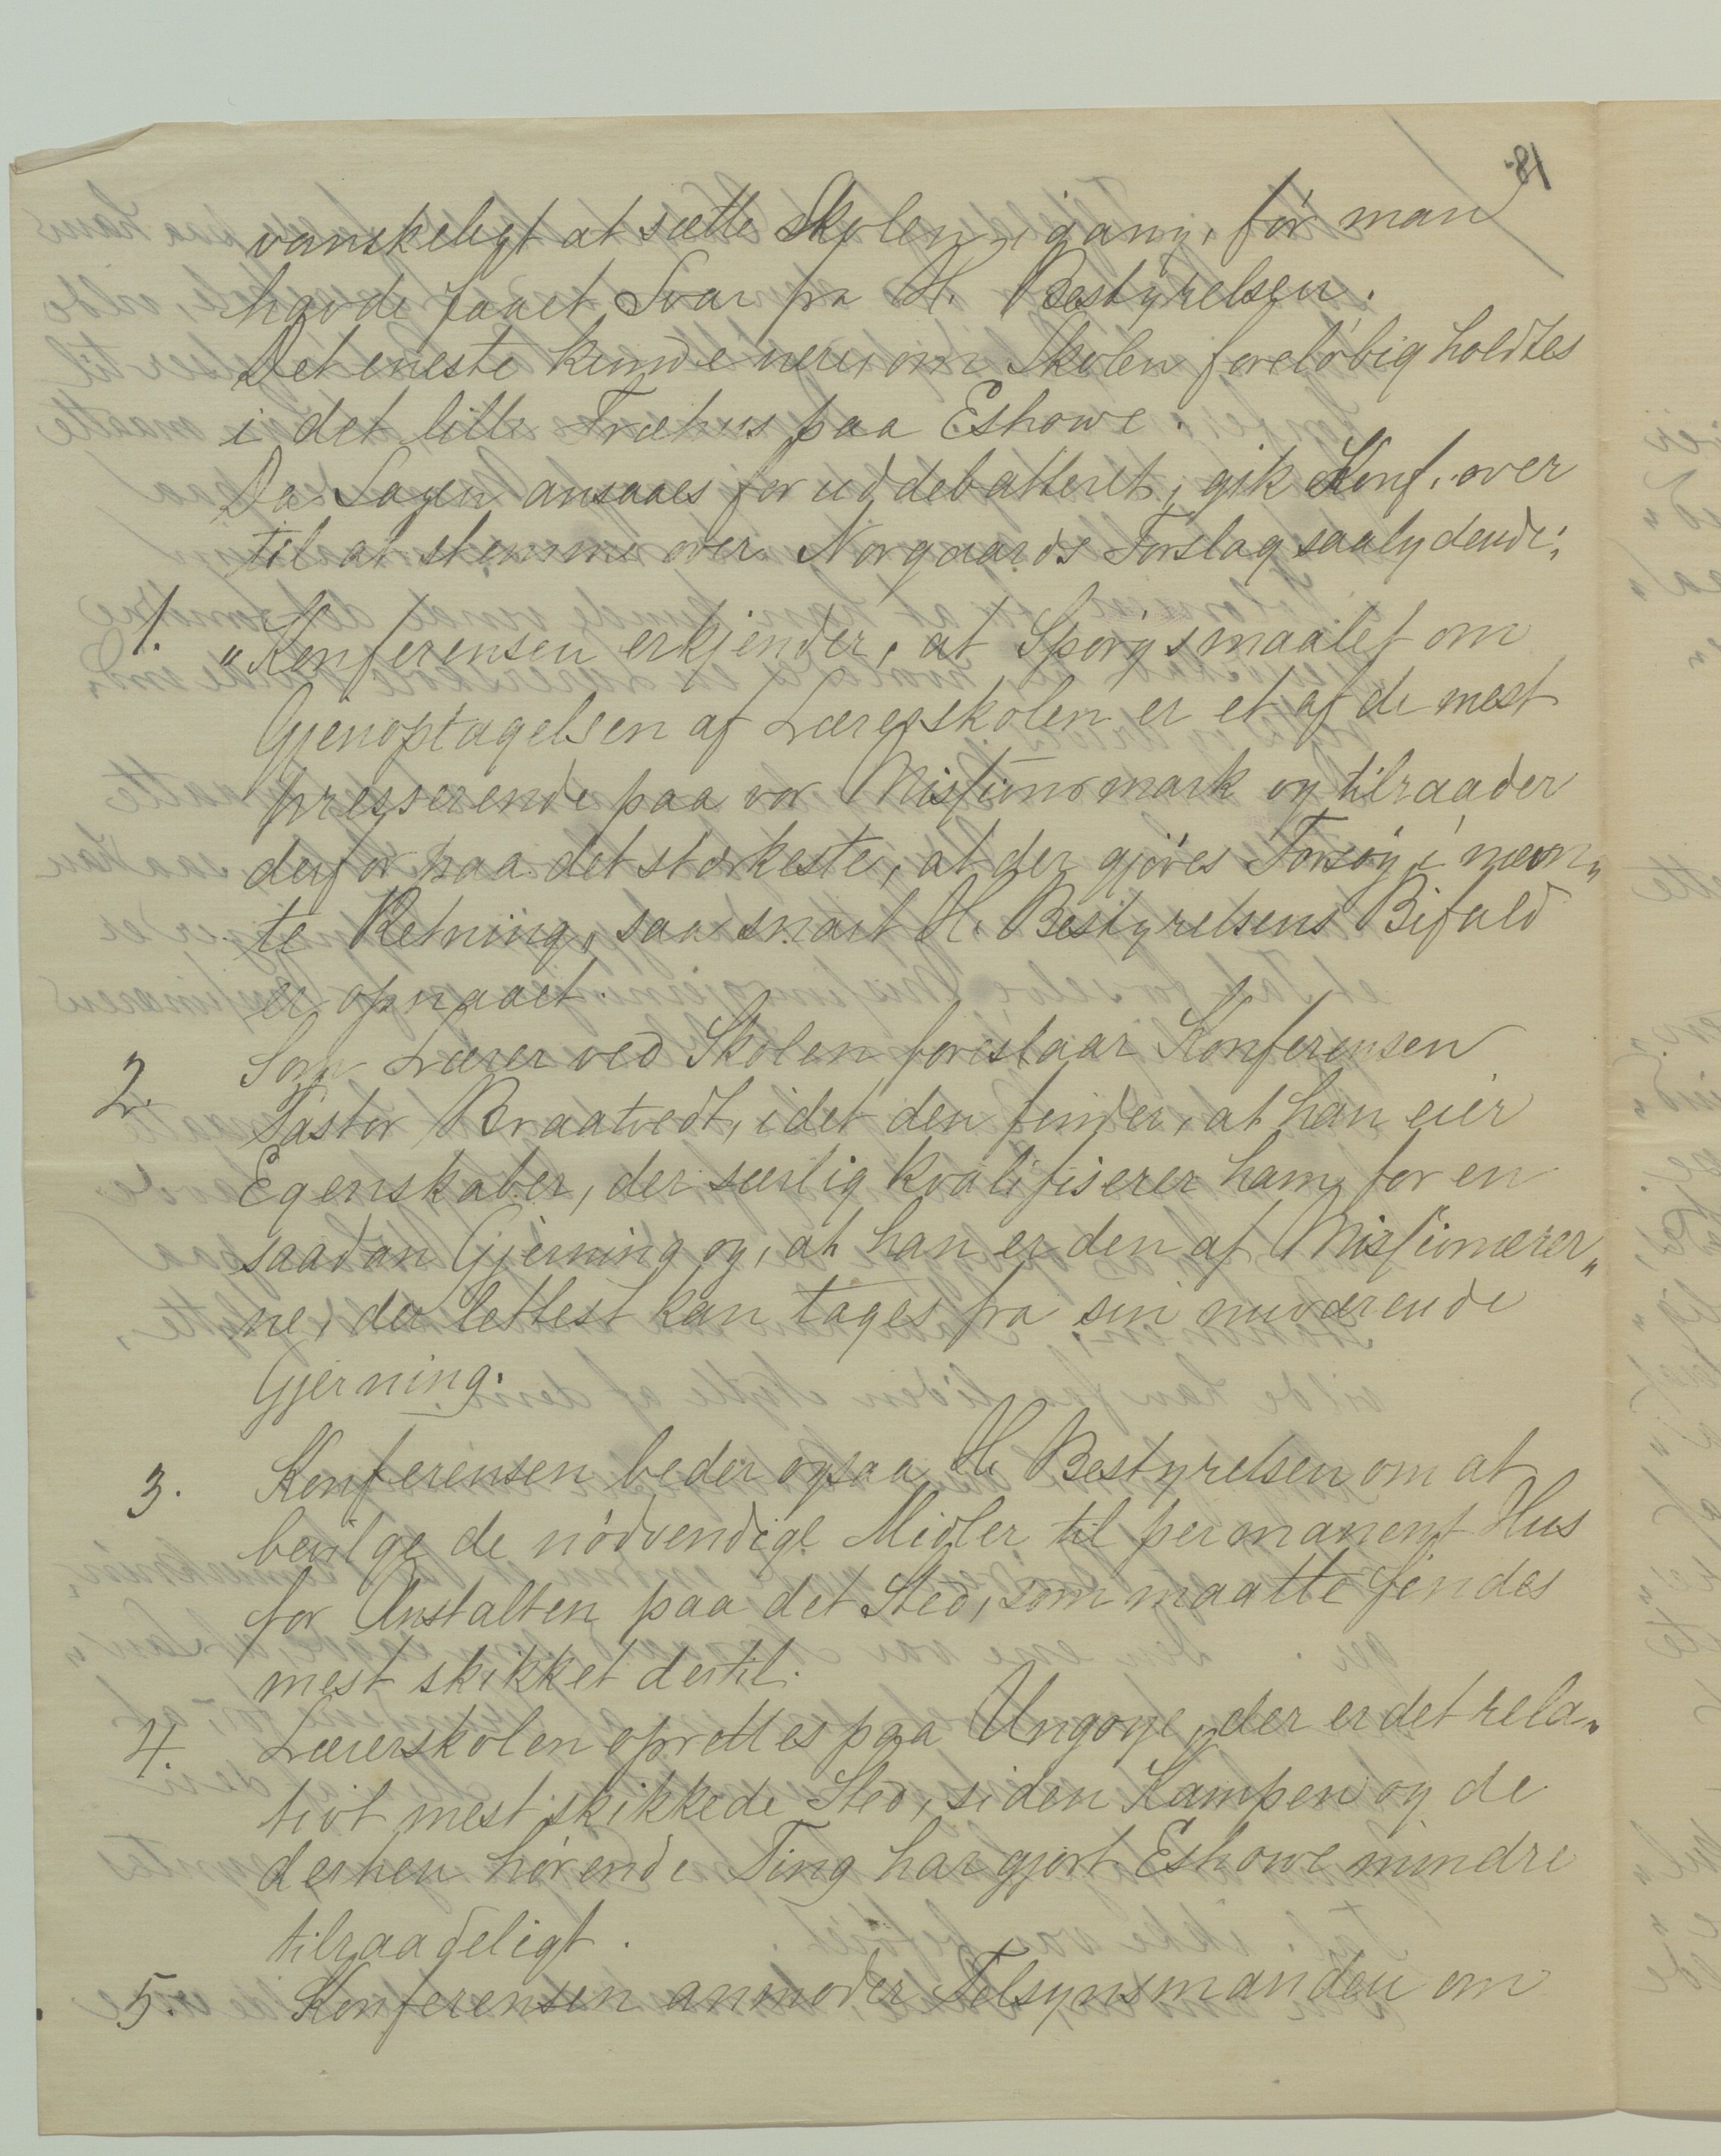 18.
vanskeligt at sætte Skolen igang, før man
havde faaet Svar fra H. Bestyrelsen.
Det eneste kunde være, om Skolen foreløbig holdtes
i det lille Træhus paa Eshowe.
Da Sagen ansaaes for uddebatteret, gik Konf. over
til at stemme over Norgaards Forslag saalydende:
1. "Konferensen erkjender, at Spørgsmaalet om
Gjenoptagelsen af Lærerskolen er et af de mest
presserende paa vor Missionsmark og tilraader
derfor paa det stærkeste, at der gjøres Forsøg i nævn„
te Retning, saa snart H. Bestyrelsens Bifald
er opnaaet.
2. Som Lærer ved Skolen foreslaar Konferensen
Pastor Braatvedt, idet den finder, at han eier
Egenskaber, der særlig kvalifiserer ham for en
saadan Gjerning og, at han er den af Missionærer„
ne, der lettest kan tages fra sin nuværende
Gjerning.
3. Konferensen beder ogsaa H. Bestyrelsen om at
bevilge de nødvendige Midler til permanent Hus
for Anstalten paa det Sted, som maatte findes
mest skikket dertil.
4. Lærerskolen oprettes paa Ungoye, der er det rela„
tivt mest skikkede Sted, siden Kampen og de
derhen hørende Ting har gjort Eshowe mindre
tilraadeligt.
5. Konferensen anmoder Tilsynsmanden om